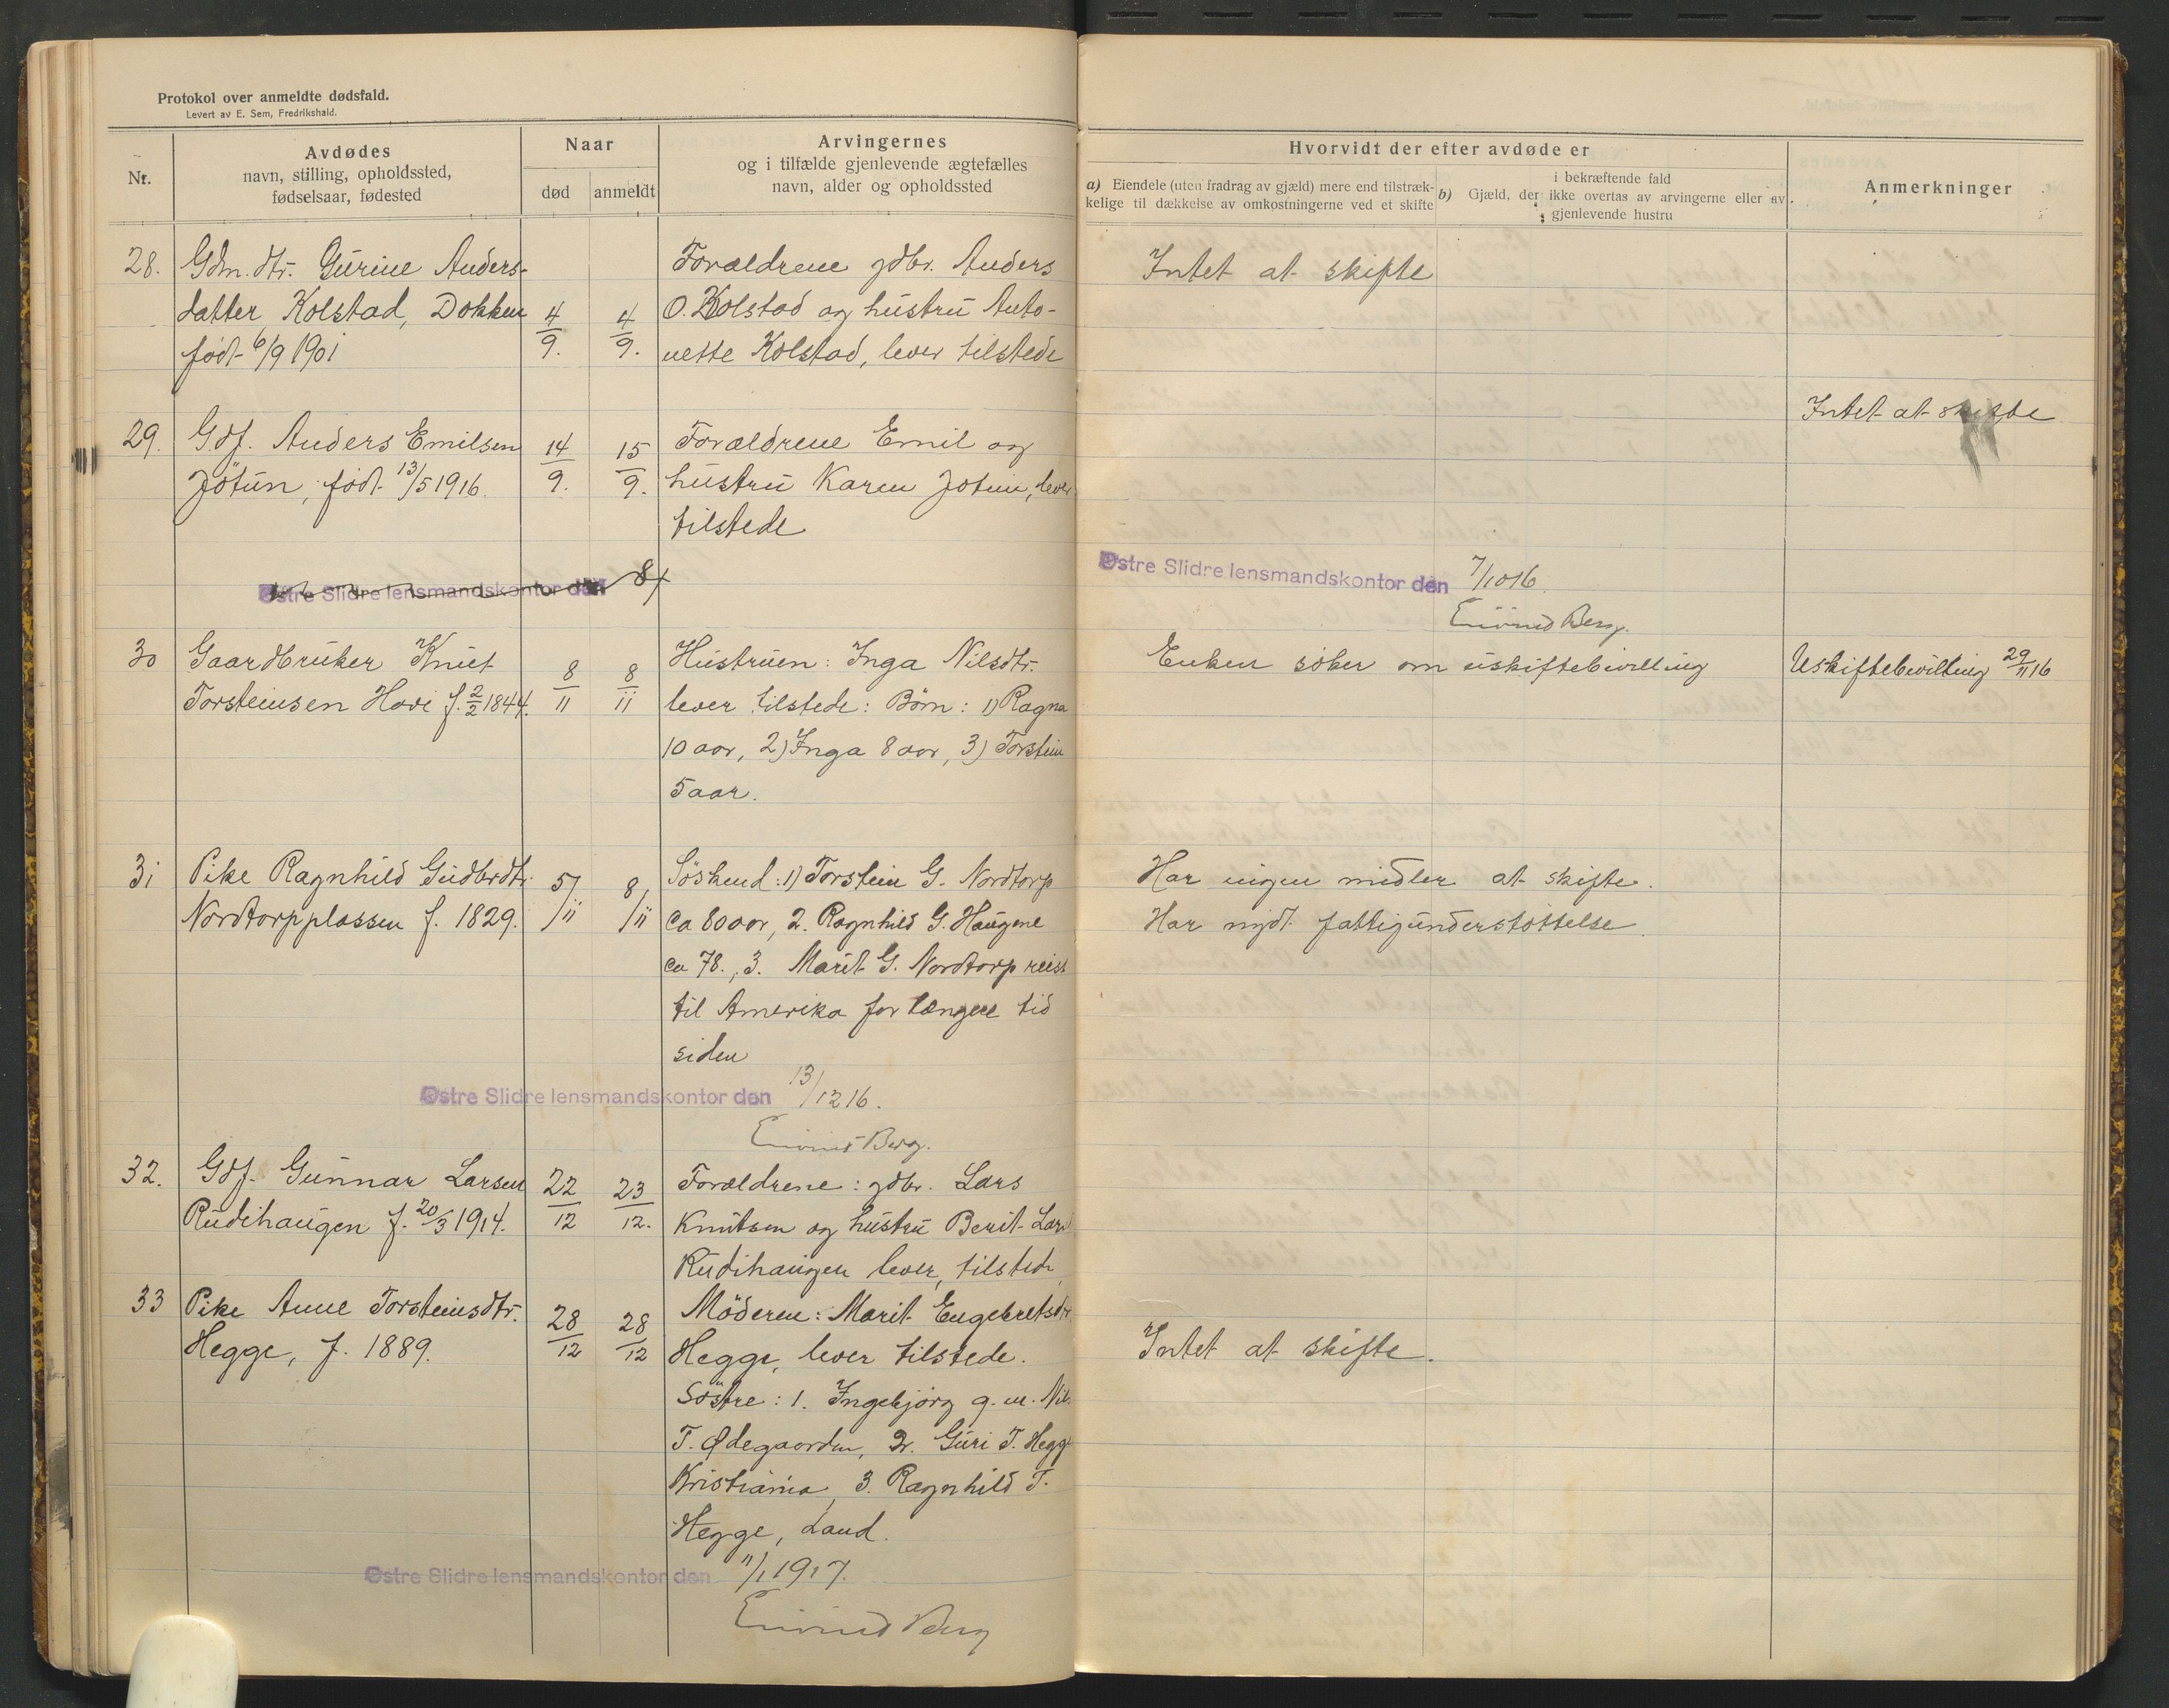 Protokol over anmeldte dødsfald.
Levert av E. Sem, Fredrikshald.
Nr.
Avdødes
navn, stilling, opholdssted,
fødselsaar, fødested
Naar
død
anmeldt
Arvingernes
og i tilfælde gjenlevende ægtefælles
navn, alder og opholdssted
Hvorvidt der efter avdøde er
a) Eiendele (uten fradrag av gjæld) mere end tilstræk-
kelige til dækkelse av omkostningerne ved et skifte
i bekræftende fald
b) Gjæld, der ikke overtas av arvingerne eller av
gjenlevende hustru
Anmerkninger
28. Gdm. dtr. Gurine Anders-
datter Kolstad, Dokken
født 6/9 1901
4/9. 4/9.
Forældrene gdbr. Anders
O. Kolstad og hustru Anto-
nette Kolstad, lever tilstede
Intet at skifte
29. Gdf. Anders Emilsen
Jötun, født 13/5 1916.
14/9. 15/9.
Forældrene Emil og
hustru Karen Jotun, lever
tilstede
Intet at skifte
Østre Slidre lensmandskontor den 8/
Østre Slidre lensmandskontor den 7/10 16.
Eivind Berg.
30 Gaardbruker Knut
Torsteinsen Hovi f. 2/2 1844.
8/11 8/11
Hustruen: Inga Nilsdtr.
lever tilstede: Børn: 1) Ragna
10 aar, 2) Inga 8 aar, 3) Torstein
5 aar.
Enken söker om uskiftebevilling
Uskiftebevilling 29/11 16
31 Pike Ragnhild Gudbrdtr.
Nordtorpplassen f. 1829.
5/11 8/11
Söskend: 1) Torstein G. Nordtorp
ca 80 aar, 2. Ragnhild G. Haugene
ca 78., 3. Marit G. Nordtorp reist
til Amerika for længere tid
siden
Har ingen midler at skifte.
Har nydt fattigunderstöttelse.
Østre Slidre lensmandskontor den 13/12 16.
Eivind Berg.
32. Gdf. Gunnar Larsen
Rudihaugen f. 20/3 1914.
22/12 23/12.
Forældrene: gdbr. Lars
Knutsen og hustru Berit Larsd
Rudihaugen lever tilstede
33 Pike Anne Torsteinsdtr.
Hegge, f. 1889.
28/12 28/12
Möderen: Marit Engebretsdtr
Hegge, lever tilstede.
Söstre: 1. Ingebjörg g. m. Nils
T. Ødegaarden, 2. Guri T. Hegge
Kristiania, 3. Ragnhild T.
Hegge, Land.
Intet at skifte.
Østre Slidre lensmandskontor den 11/1 1917.
Eivind Berg